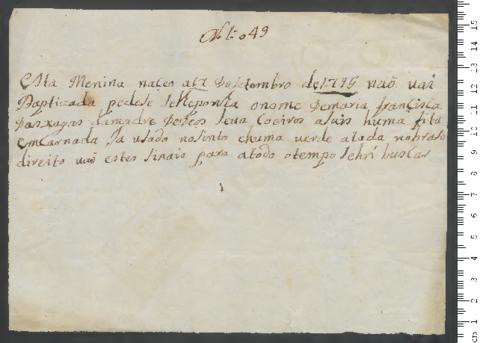 Nº 1:049
Esta Menina naceo a 17 de setembro de 1795 não vai
Baptizada pedese se lhe ponha o nome de maria francisca
das xagas da madre de Deos Leva Coeiros azuis huma fita
emcarnada Ja uzado no sinto e huma verde atada no braso
direito vai estes sinais para a todo o tempo se hir buscar